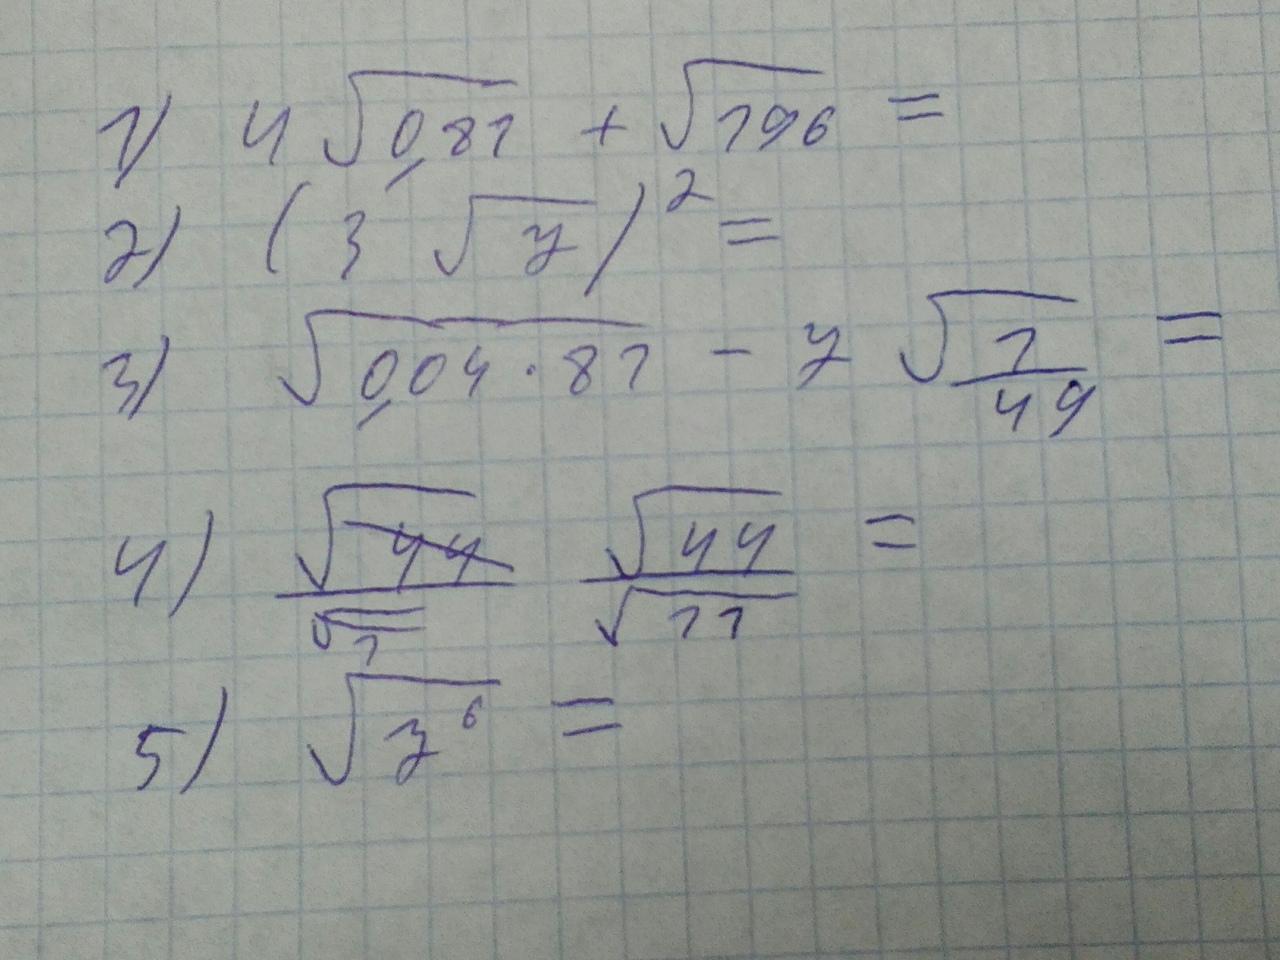 1) 4√0,81 + √196 =
2) (3√7)² =
3) √0,04 · 81 − 7√1/49 =
4) √44/√11 =
5) √3⁶ =